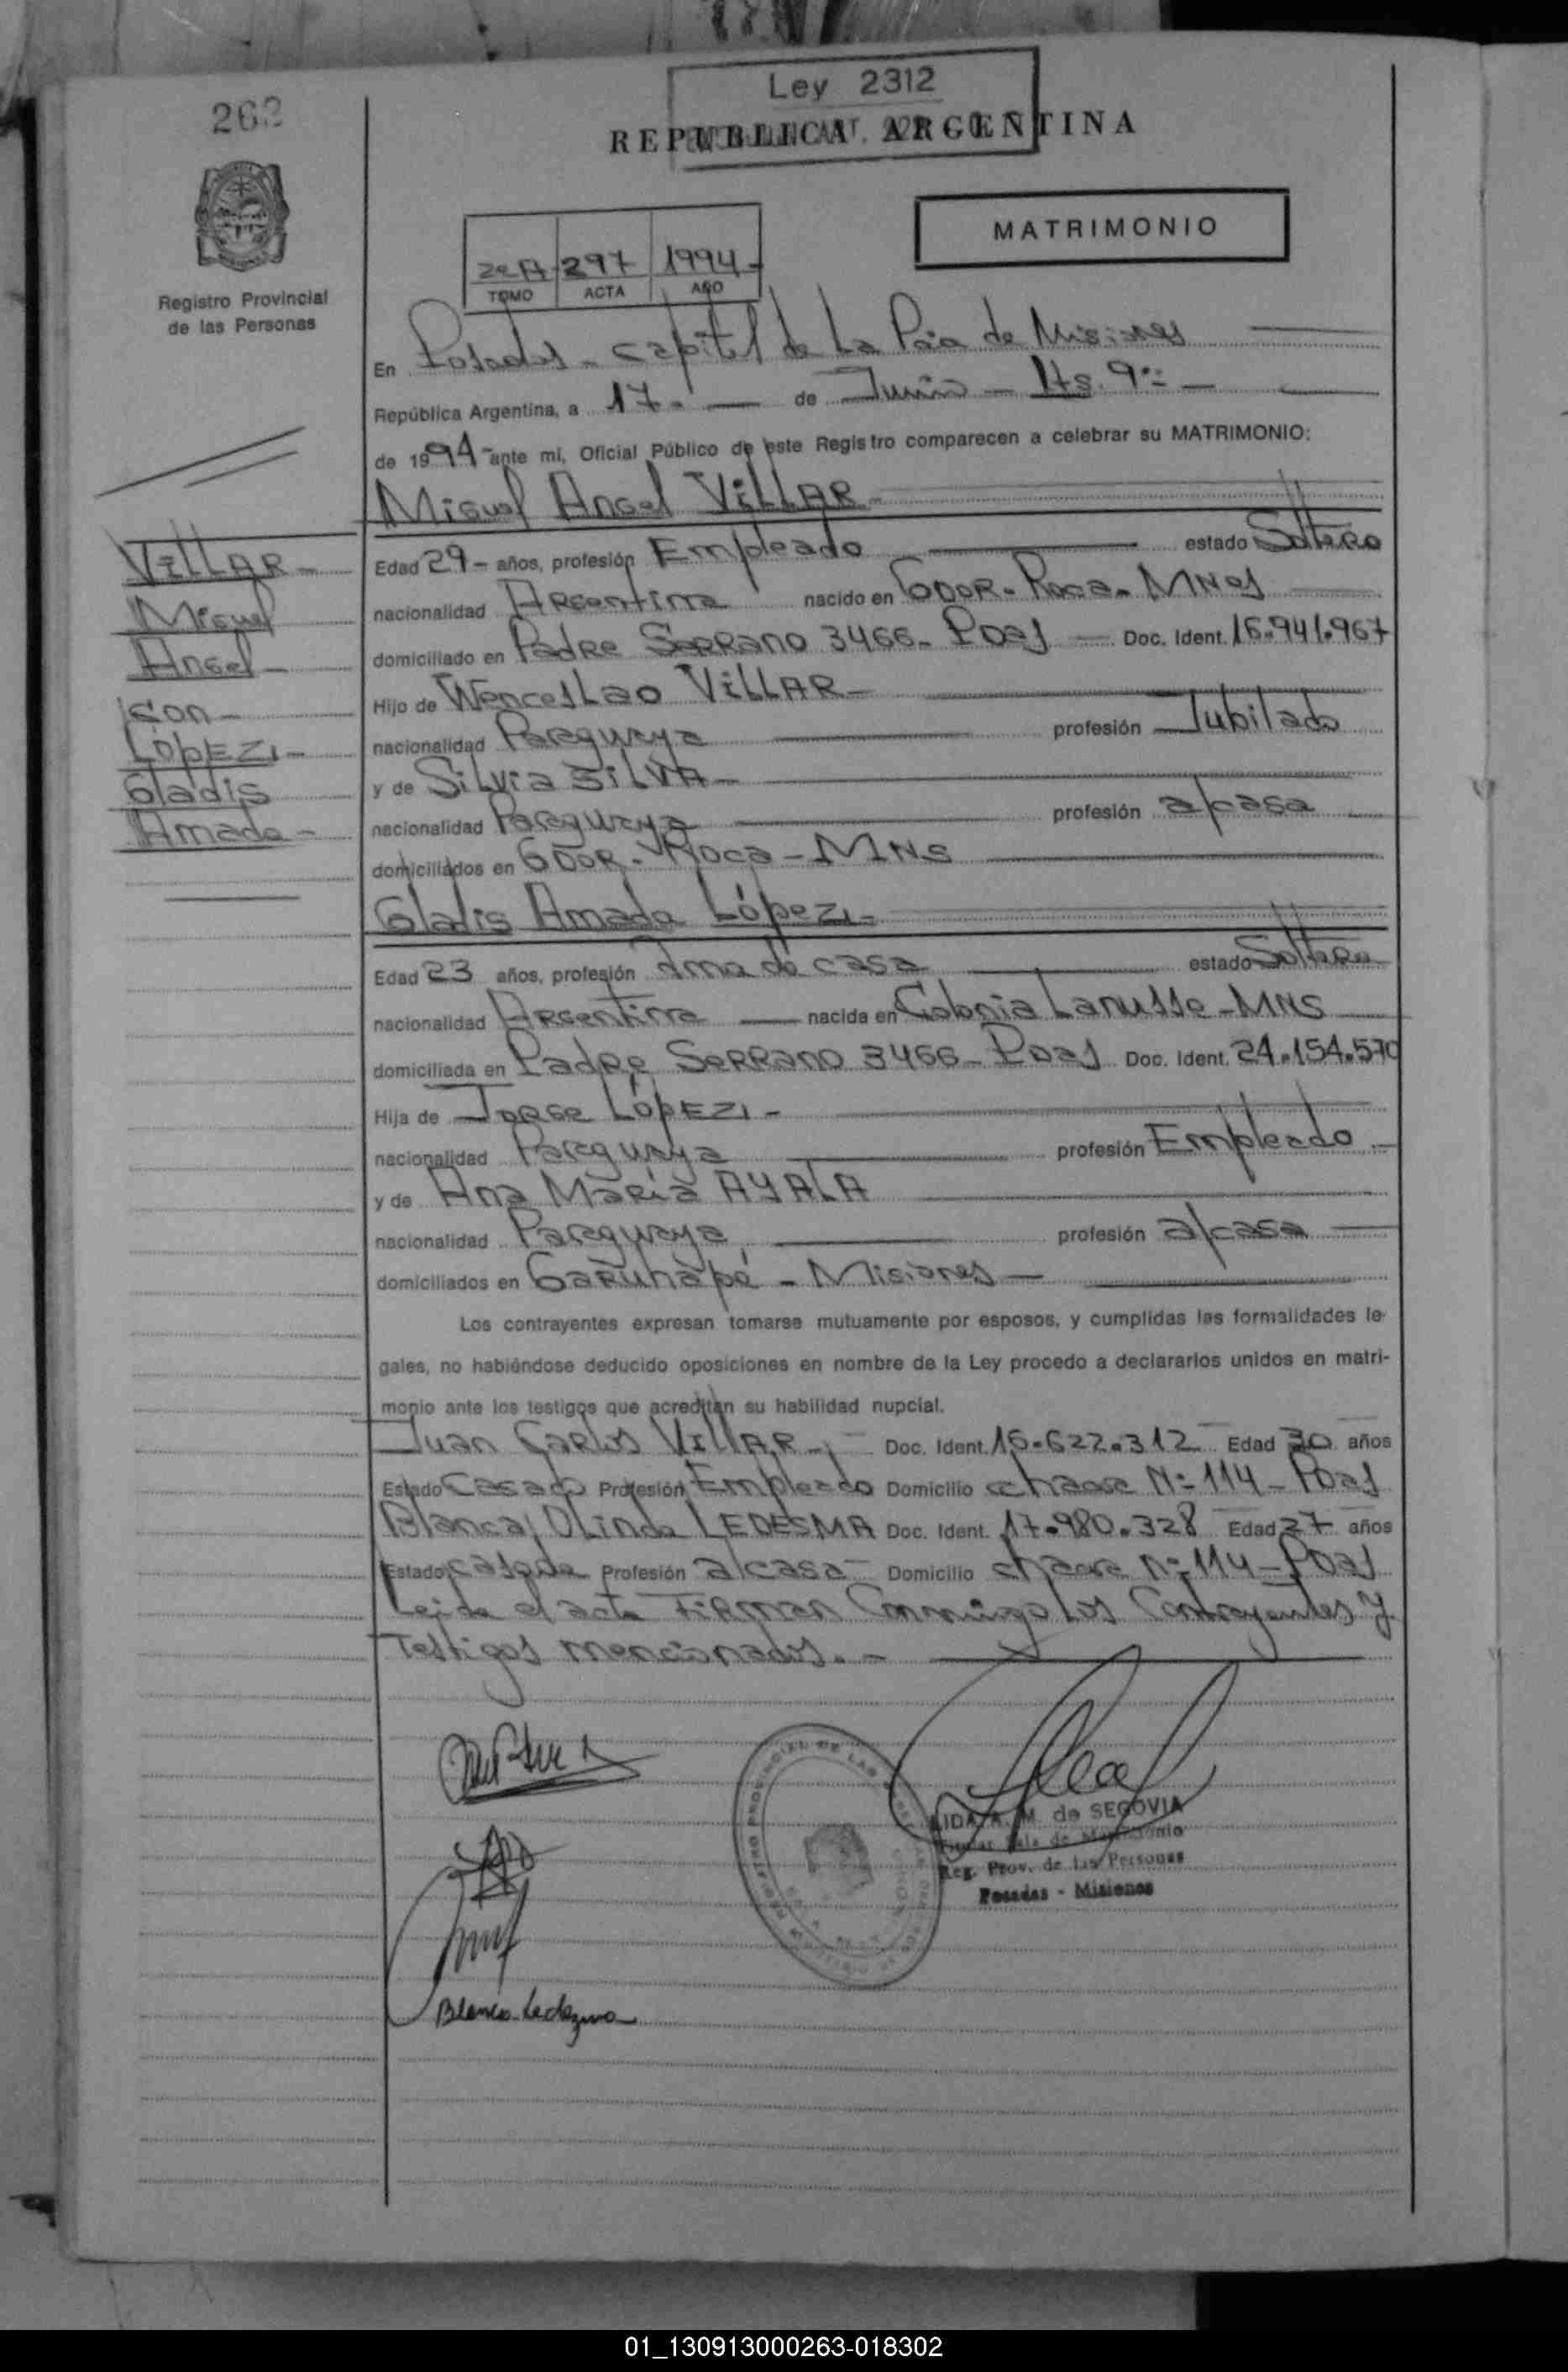 262
Ley 2312
REPUBLICA ARGENTINA
Registro Provincial
de las Personas
MATRIMONIO
2eA 297 1994-
TOMO ACTA AÑO
En Posadas - capital de La Pcia de Misiones
República Argentina, a 17.- de Junio - Hs. 9:=
de 1994- ante mi, Oficial Público de este Registro comparecen a celebrar su MATRIMONIO:
Miguel Angel VILLAR-
VILLAR-
Miguel
Angel-
con-
LópEZI-
Gladis
Amada-
Edad 29- años, profesión Empleado estado Soltero
nacionalidad Argentina nacido en GDOR- Roca- MNes
domiciliado en Padre Serrano 3466- PDas Doc. Ident. 16.941.967
Hijo de Wenceslao VILLAR-
nacionalidad Paraguaya profesión Jubilado
y de Silvia SILVA-
nacionalidad Paraguaya profesión a/casa
domiciliados en GDOR- Roca - MNS
Gladis Amada LópEZI-
Edad 23 años, profesión Ama de casa estado Soltera
nacionalidad Argentina nacida en Colonia Lanusse - MNS
domiciliada en Padre Serrano 3466- PDas Doc. Ident. 24.154.570
Hija de Jorge LópEZI-
nacionalidad Paraguaya profesión Empleado
y de Ana María AYALA
nacionalidad Paraguaya profesión a/casa
domiciliados en Garuhapé - Misiones
Los contrayentes expresan tomarse mutuamente por esposos, y cumplidas las formalidades le-
gales, no habiéndose deducido oposiciones en nombre de la Ley procedo a declararlos unidos en matri-
monio ante los testigos que acreditan su habilidad nupcial.
Juan Carlos VILLAR- Doc. Ident. 16.622.312 Edad 30 años
Estado Casado Profesión Empleado Domicilio chacra N= 114- PDas
Blanca Olinda LEDESMA Doc. Ident. 17.980.328 Edad 27 años
Estado casada Profesión a/casa- Domicilio chacra N= 114- PDas
Leida el acta Firman Conmigo Los Contrayentes y
Testigos mencionados.-
LIDA A. M. de SEGOVIA
Titular Sala de Matrimonio
Reg. Prov. de las Personas
Posadas - Misiones
REGISTRO PROVINCIAL DE LAS
Blanca Ledezma
01_130913000263-018302